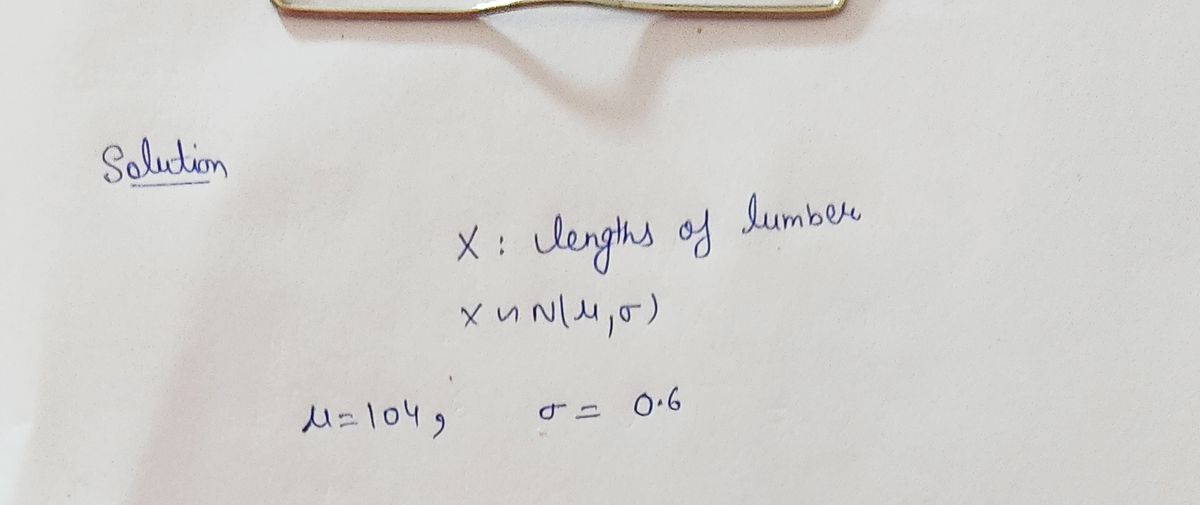 Solution
X : lengths of lumber
X ∽ N(μ,σ)
μ=104, σ= 0.6